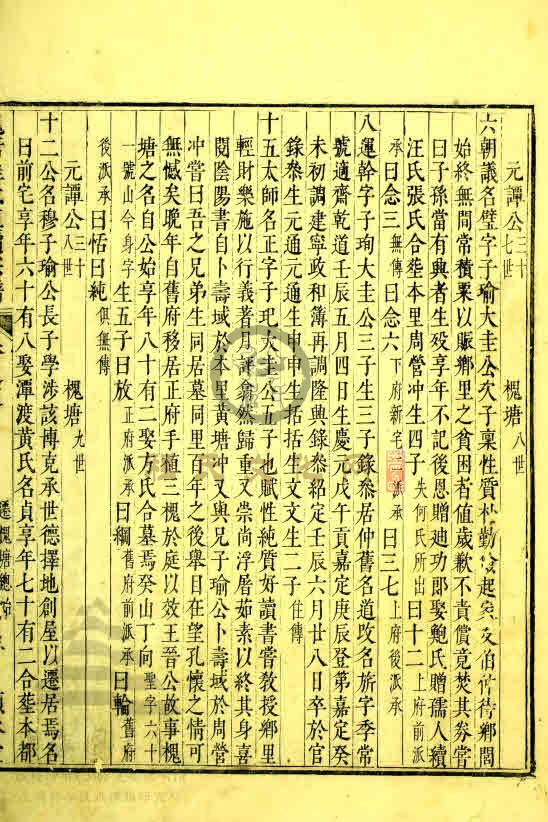 元譚公 三十七世 槐塘 八世
六朝議名璧字子瑜大圭公次子稟性質朴勤儉起家交伯偕待鄉閭
始終無間常積粟以賑鄉里之貧困者值歲歉不責償竟焚其券嘗
曰子孫當有興者生歿享年不記後恩贈迪功郎娶鮑氏贈孺人續
汪氏張氏合塟本里周管冲生四子 失何氏所出 曰十二 上府前派
承 曰念三 無傳 曰念六 下府新宅二派承 曰三七 上府後派承
八運幹字子珣大圭公三子生三子錄叅居仲舊名道改名旂字季常
號適齋乾道壬辰五月四日生慶元戊午貢嘉定庚辰登第嘉定癸
未初調建寧政和簿再調隆興錄叅紹定壬辰六月廿八日卒於官
錄叅生元通元通生申申生括括生文文生二子 仕傳
十五太師名正字子玘大圭公五子也賦性純質好讀書嘗教授鄉里
輕財樂施以行義著月評翕然歸重又崇尚浮屠茹素以終其身喜
閱陰陽書自卜壽域於本里黃塘冲又與兄子瑜公卜壽域於周管
冲嘗曰吾之兄弟生同居墓同里百年之後舉目在望孔懷之情可
無憾矣晚年自舊府移居正府手植三槐於庭以效王晉公故事槐
塘之名自公始享年八十有二娶方氏合墓焉癸山丁向 聖字六十
一號山今身字 生五子曰放 正府派承 曰綱 舊府前派承 曰輪 舊府
後派承 曰恬曰純 俱無傳
元譚公 三十八世 槐塘 九世
十二公名穆子瑜公長子學涉該博克承世德擇地創屋以遷居焉名
曰前宅享年六十有八娶潭渡黃氏名貞享年七十有二合塟本都